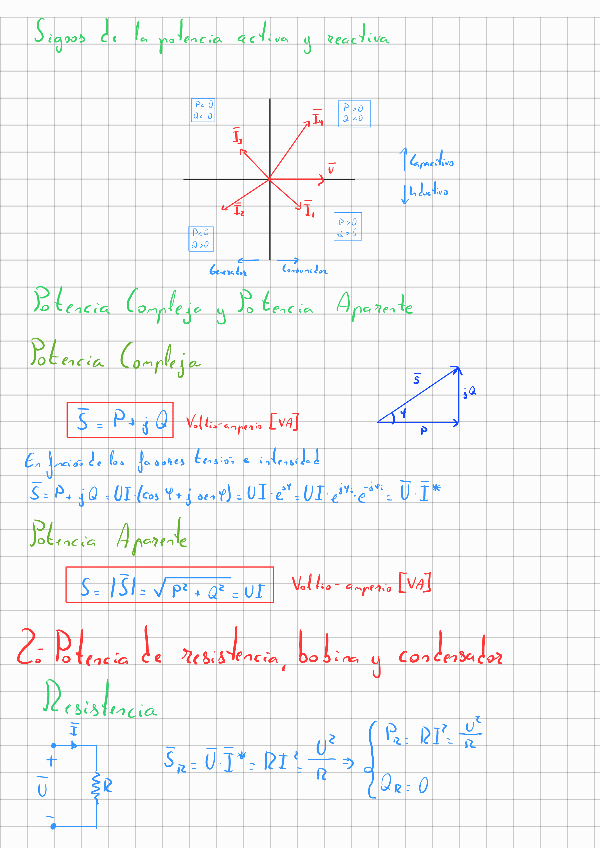 Signos de la potencia activa y reactiva
P<0
Q<0
P>0
Q<0
I̅₃
I̅₄
U̅
Capacitivo
Inductivo
I̅₂
I̅₁
P<0
Q>0
P>0
Q>0
Generador
Consumidor
Potencia Compleja y Potencia Aparente
Potencia Compleja
S̅
jQ
φ
P
S̅ = P + jQ Voltio-amperio [VA]
En función de los fasores tensión e intensidad
S̅ = P + jQ = UI·(cos φ + j sen φ) = UI·e^jφ = UI·e^jφᵤ·e^-jφᵢ = U̅·I̅*
Potencia Aparente
S = |S̅| = √(P² + Q²) = UI Voltio-amperio [VA]
2: Potencia de resistencia, bobina y condensador
Resistencia
I̅
+
U̅
R
-
S̅_R = U̅·I̅* = RI² = U²/R ⇒ { P_R = RI² = U²/R
Q_R = 0